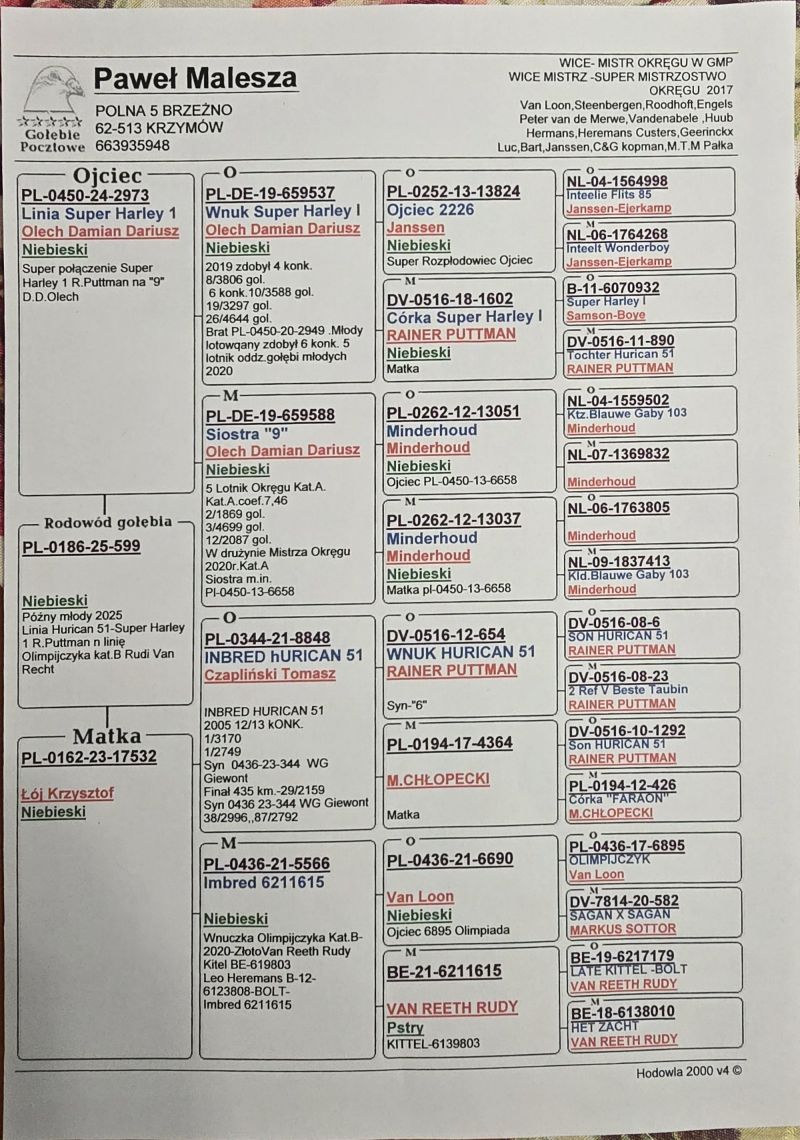 Paweł Malesza
POLNA 5 BRZEŹNO
62-513 KRZYMÓW
663935948
Gołebie
Pocztowe
WICE- MISTR OKRĘGU W GMP
WICE MISTRZ -SUPER MISTRZOSTWO
OKRĘGU 2017
Van Loon,Steenbergen,Roodhoft,Engels
Peter van de Merwe,Vandenabele ,Huub
Hermans,Heremans Custers,Geerinckx
Luc,Bart,Janssen,C&G kopman,M.T.M Pałka
Ojciec
PL-0450-24-2973
Linia Super Harley 1
Olech Damian Dariusz
Niebieski
Super połączenie Super
Harley 1 R.Puttman na "9"
D.D.Olech
Rodowód gołębia
PL-0186-25-599
Niebieski
Późny młody 2025
Linia Hurican 51-Super Harley
1 R.Puttman n linię
Olimpijczyka kat.B Rudi Van
Recht
Matka
PL-0162-23-17532
Łój Krzysztof
Niebieski
O
PL-DE-19-659537
Wnuk Super Harley I
Olech Damian Dariusz
Niebieski
2019 zdobył 4 konk.
8/3806 gol.
6 konk.10/3588 gol.
19/3297 gol.
26/4644 gol.
Brat PL-0450-20-2949 .Młody
lotowqany zdobył 6 konk. 5
lotnik oddz.gołębi młodych
2020
M
PL-DE-19-659588
Siostra "9"
Olech Damian Dariusz
Niebieski
5 Lotnik Okręgu Kat.A.
Kat.A.coef.7,46
2/1869 gol.
3/4699 gol.
12/2087 gol.
W drużynie Mistrza Okręgu
2020r.Kat.A
Siostra m.in.
Pl-0450-13-6658
O
PL-0344-21-8848
INBRED hURICAN 51
Czapliński Tomasz
INBRED HURICAN 51
2005 12/13 kONK.
1/3170
1/2749
Syn 0436-23-344 WG
Giewont
Finał 435 km.-29/2159
Syn 0436 23-344 WG Giewont
38/2996,,87/2792
M
PL-0436-21-5566
Imbred 6211615
Niebieski
Wnuczka Olimpijczyka Kat.B-
2020-ZłotoVan Reeth Rudy
Kitel BE-619803
Leo Heremans B-12-
6123808-BOLT-
Imbred 6211615
O
PL-0252-13-13824
Ojciec 2226
Janssen
Niebieski
Super Rozpłodowiec Ojciec
M
DV-0516-18-1602
Córka Super Harley I
RAINER PUTTMAN
Niebieski
Matka
O
PL-0262-12-13051
Minderhoud
Minderhoud
Niebieski
Ojciec PL-0450-13-6658
M
PL-0262-12-13037
Minderhoud
Minderhoud
Niebieski
Matka pl-0450-13-6658
O
DV-0516-12-654
WNUK HURICAN 51
RAINER PUTTMAN
Syn-"6"
M
PL-0194-17-4364
M.CHŁOPECKI
Matka
O
PL-0436-21-6690
Van Loon
Niebieski
Ojciec 6895 Olimpiada
M
BE-21-6211615
VAN REETH RUDY
Pstry
KITTEL-6139803
O
NL-04-1564998
Inteelie Flits 85
Janssen-Ejerkamp
M
NL-06-1764268
Inteelt Wonderboy
Janssen-Ejerkamp
O
B-11-6070932
Super Harley I
Samson-Boye
M
DV-0516-11-890
Tochter Hurican 51
RAINER PUTTMAN
O
NL-04-1559502
Ktz.Blauwe Gaby 103
Minderhoud
M
NL-07-1369832
Minderhoud
O
NL-06-1763805
Minderhoud
M
NL-09-1837413
Kld.Blauwe Gaby 103
Minderhoud
O
DV-0516-08-6
SON HURICAN 51
RAINER PUTTMAN
M
DV-0516-08-23
2 Ref V Beste Taubin
RAINER PUTTMAN
O
DV-0516-10-1292
Son HURICAN 51
RAINER PUTTMAN
M
PL-0194-12-426
Córka "FARAON"
M.CHŁOPECKI
O
PL-0436-17-6895
OLIMPIJCZYK
Van Loon
M
DV-7814-20-582
SAGAN X SAGAN
MARKUS SOTTOR
O
BE-19-6217179
LATE KITTEL -BOLT
VAN REETH RUDY
M
BE-18-6138010
HET ZACHT
VAN REETH RUDY
Hodowla 2000 v4 ©